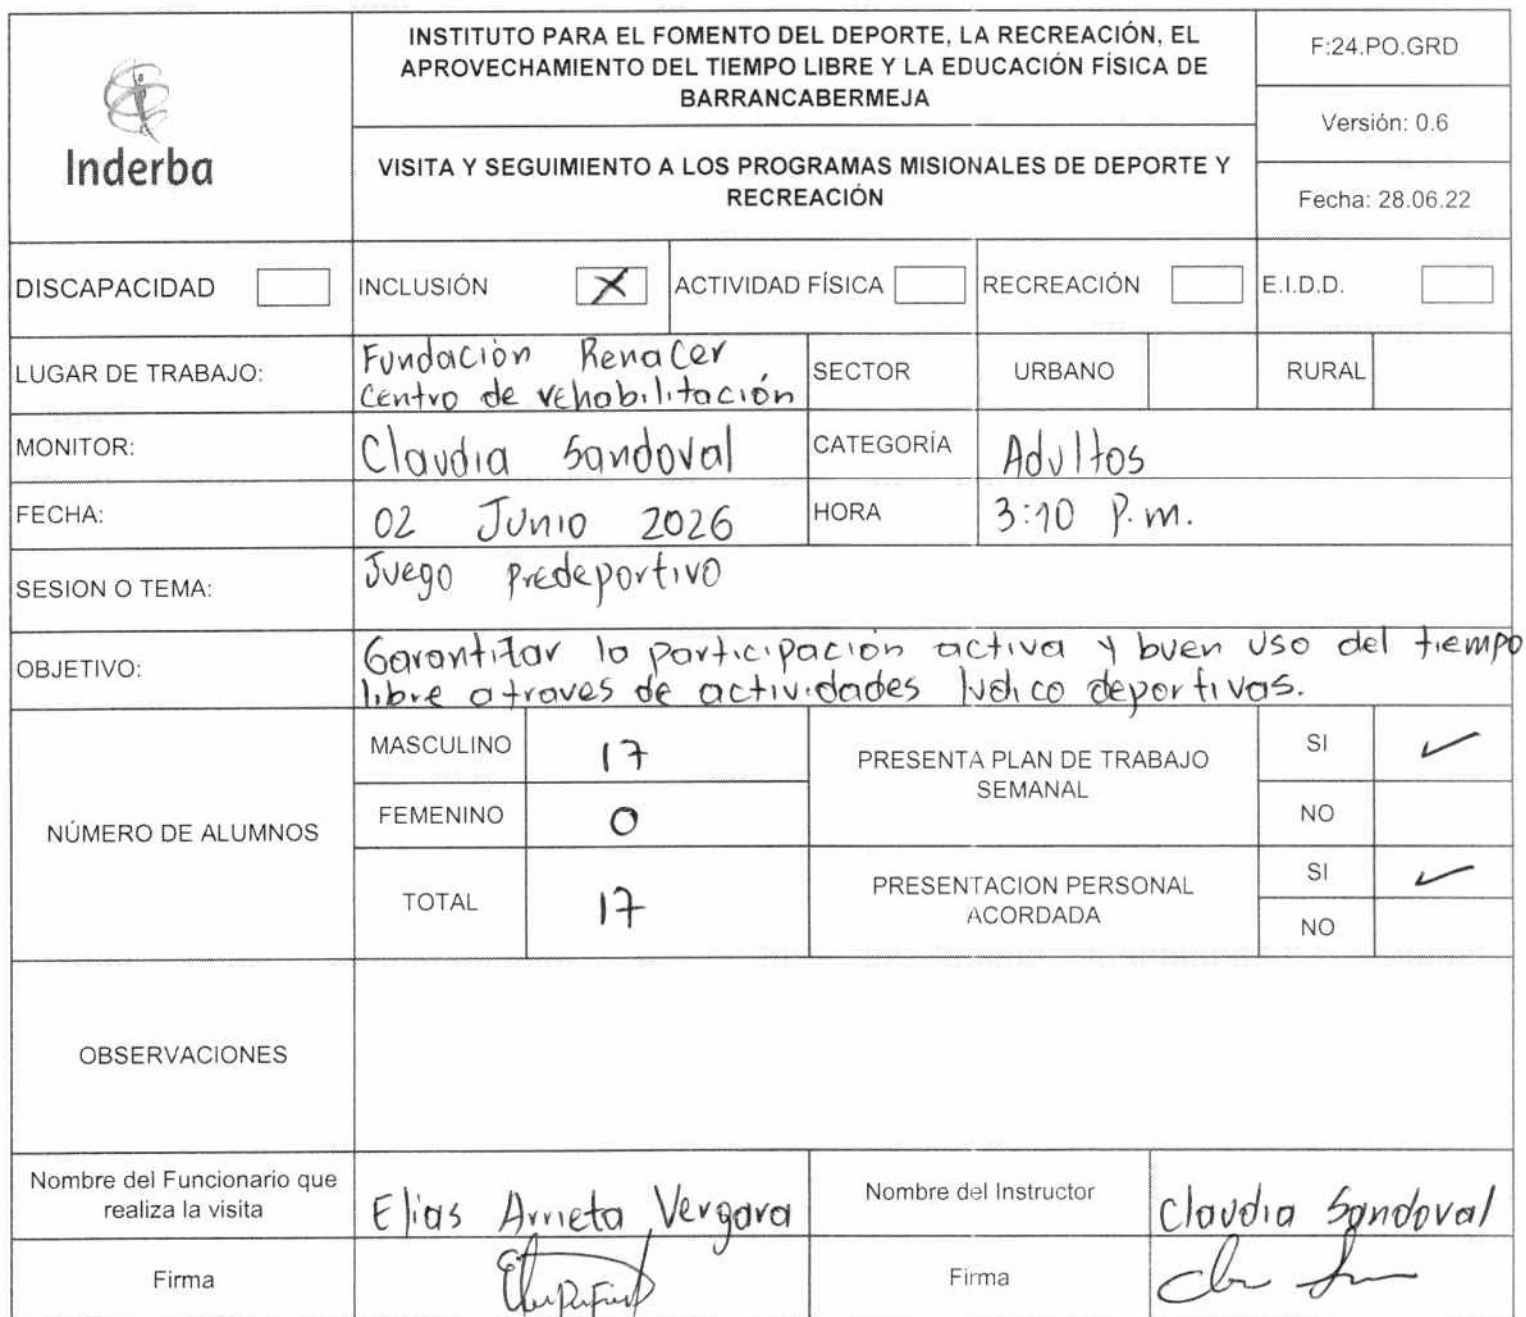 Inderba
INSTITUTO PARA EL FOMENTO DEL DEPORTE, LA RECREACIÓN, EL
APROVECHAMIENTO DEL TIEMPO LIBRE Y LA EDUCACIÓN FÍSICA DE
BARRANCABERMEJA
VISITA Y SEGUIMIENTO A LOS PROGRAMAS MISIONALES DE DEPORTE Y
RECREACIÓN
F:24.PO.GRD
Versión: 0.6
Fecha: 28.06.22
DISCAPACIDAD INCLUSIÓN X ACTIVIDAD FÍSICA RECREACIÓN E.I.D.D.
LUGAR DE TRABAJO: Fundación Renacer
centro de rehabilitación
SECTOR URBANO RURAL
MONITOR: Claudia Sandoval CATEGORÍA Adultos
FECHA: 02 Junio 2026 HORA 3:10 P.m.
SESION O TEMA: Juego Predeportivo
OBJETIVO: Garantizar la participación activa y buen uso del tiempo
libre a traves de actividades ludico deportivas.
NÚMERO DE ALUMNOS
MASCULINO 17
FEMENINO 0
TOTAL 17
PRESENTA PLAN DE TRABAJO
SEMANAL
SI ✓
NO
PRESENTACION PERSONAL
ACORDADA
SI ✓
NO
OBSERVACIONES
Nombre del Funcionario que
realiza la visita
Elias Arrieta Vergara
Nombre del Instructor
Claudia Sandoval
Firma
Firma